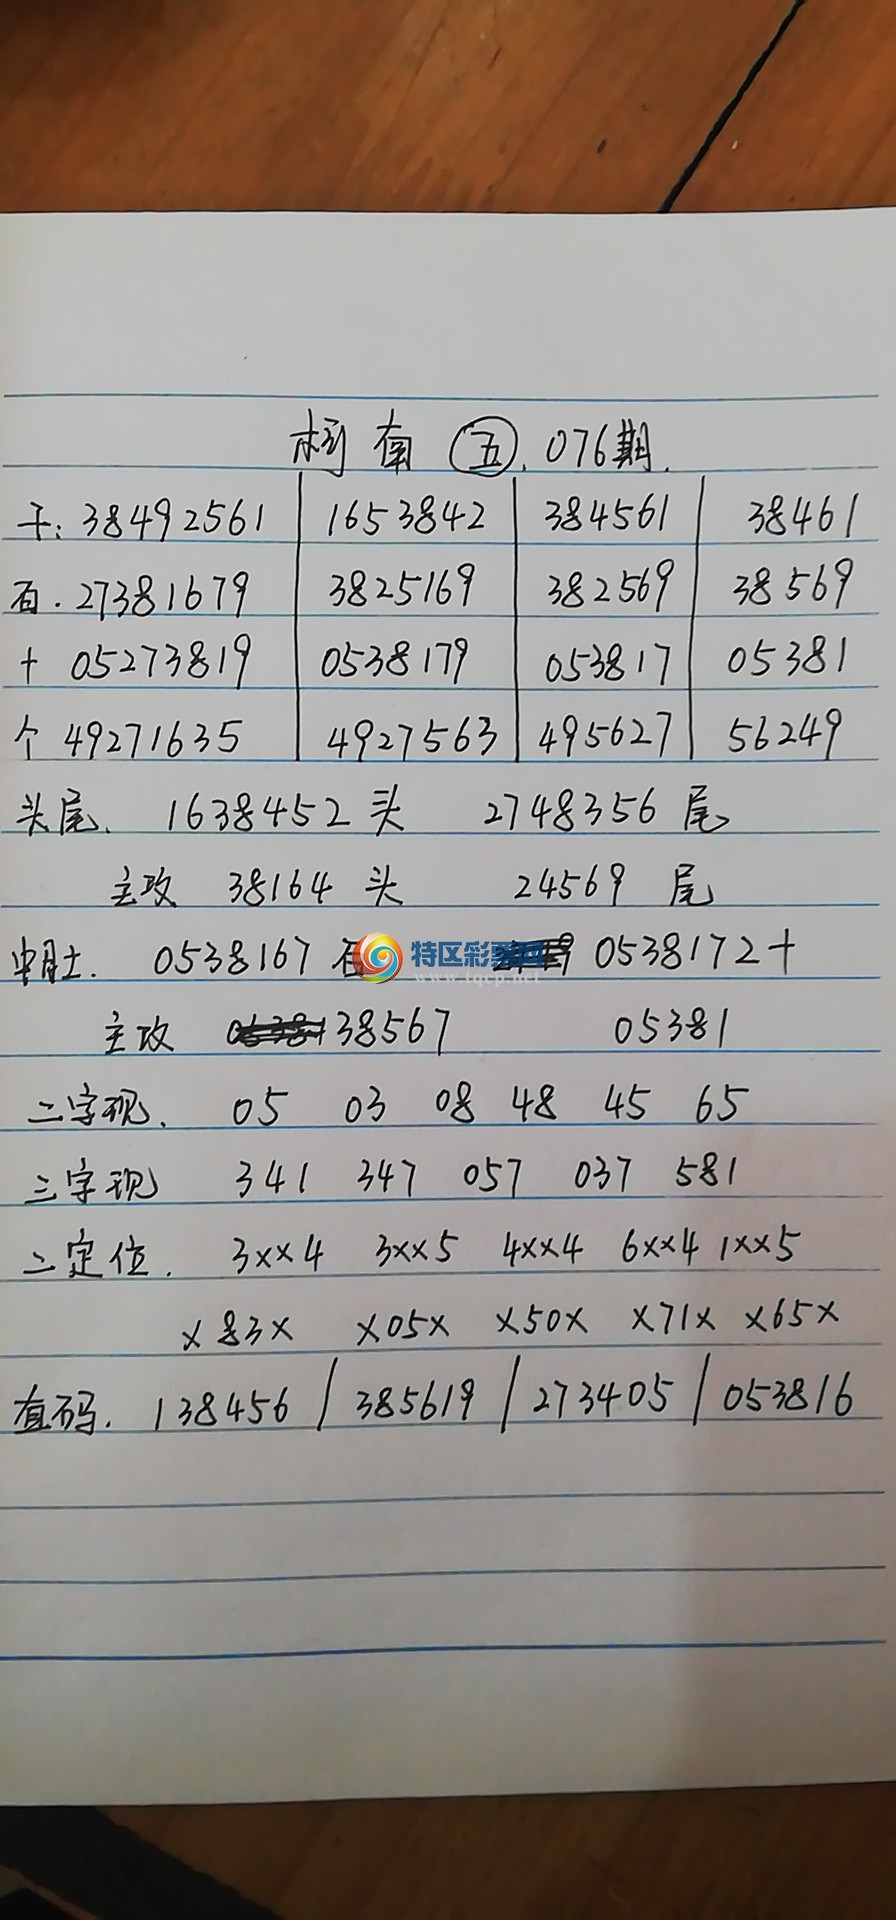 五. 076期.
千: 38492561 1653842 384561 38461
百. 27381679 3825169 382569 38569
十 05273819 0538179 053817 05381
个 49271635 4927563 495627 56249
头尾. 1638452 头 2748356 尾
主攻 38164 头 24569 尾
中肚. 0538167 百 0538172 十
特区彩票网
www.tqcp.net
主攻 38567 05381
二字现. 05 03 08 48 45 65
三字现 341 347 057 037 581
二定位. 3××4 3××5 4××4 6××4 1××5
×83× ×05× ×50× ×71× ×65×
直码. 138456 / 385619 / 273405 / 053816